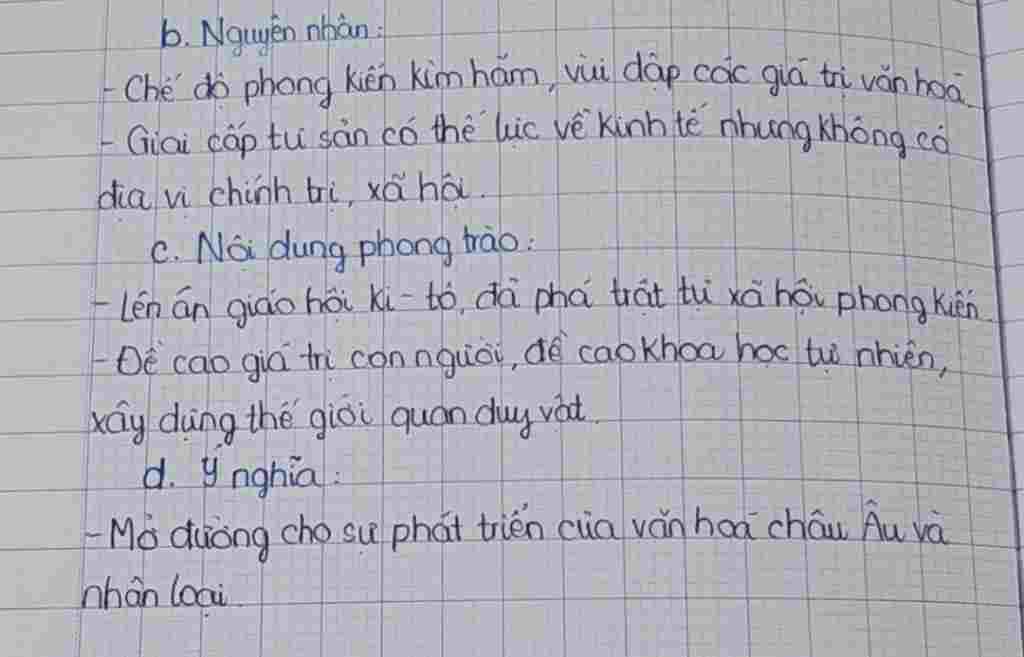 b. Nguyên nhân:
- Chế độ phong kiến kìm hãm, vùi dập các giá trị văn hoá.
- Giai cấp tư sản có thế lực về kinh tế nhưng không có
địa vị chính trị, xã hội.
c. Nội dung phong trào:
- Lên án giáo hội Ki-tô, đả phá trật tự xã hội phong kiến
- Đề cao giá trị con người, đề cao khoa học tự nhiên,
xây dựng thế giới quan duy vật.
d. Ý nghĩa:
- Mở đường cho sự phát triển của văn hoá châu Âu và
nhân loại.